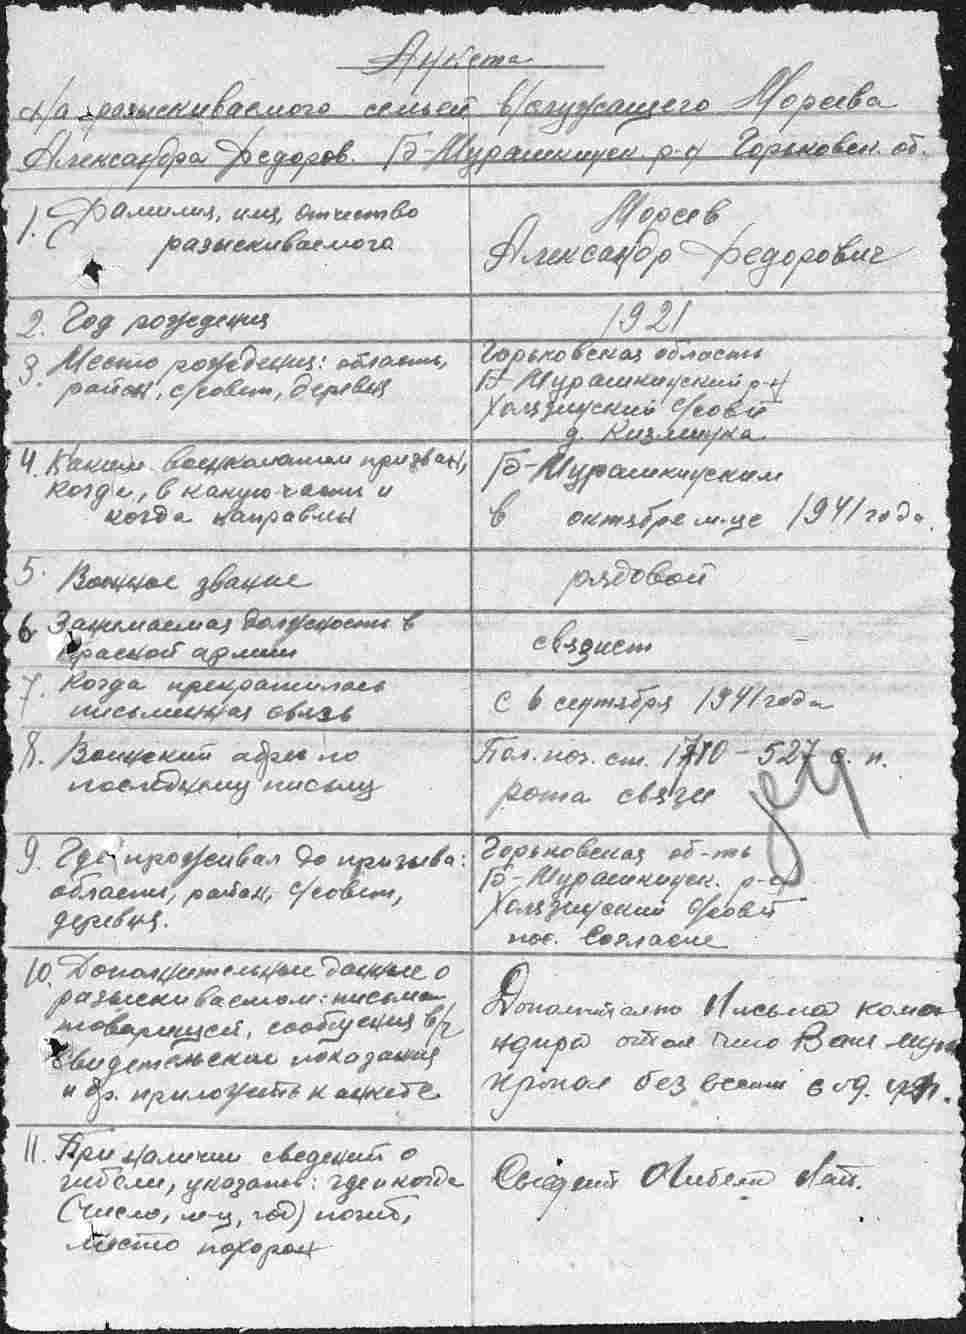 Анкета
На разыскиваемого семьей в/служащего Морева
Александра Федоров. Б-Мурашкинск. р-н Горьковск. об.
1. Фамилия, имя, отчество
разыскиваемого
Морев
Александр Федорович
2. Год рождения
1921
3. Место рождения: область,
район, с/совет, деревня
Горьковская область
Б-Мурашкинский р-н
Холязинский с/совет
д.
4. Каким военкоматом призван,
когда, в какую части и
когда направлен
Б-Мурашкинским
в октябре м-це 1941 года.
5. Военное звание
рядовой
6. Занимаемая должность в
Красной армии
связист
7. Когда прекратилась
письменная связь
с 6 сентября 1941 года
8. Воинский адрес по
последнему письму
Пол. поч. ст. 1710 - 527 с. п.
рота связи
9. Где проживал до призыва:
область, район, с/совет,
деревня.
Горьковская об-ть
Б-Мурашкинск. р-н
Холязинский с/совет
пос. Согласие
10. Дополнительные данные о
разыскиваемом: письма
товарищей, сообщения в/ч
свидетельские показания
и др. приложить к анкете
Письма коман
дира о том что Ваш
пропал без вести
11. При наличии сведений о
гибели, указать: где и когда
(число, м-ц, год) погиб,
место похорон